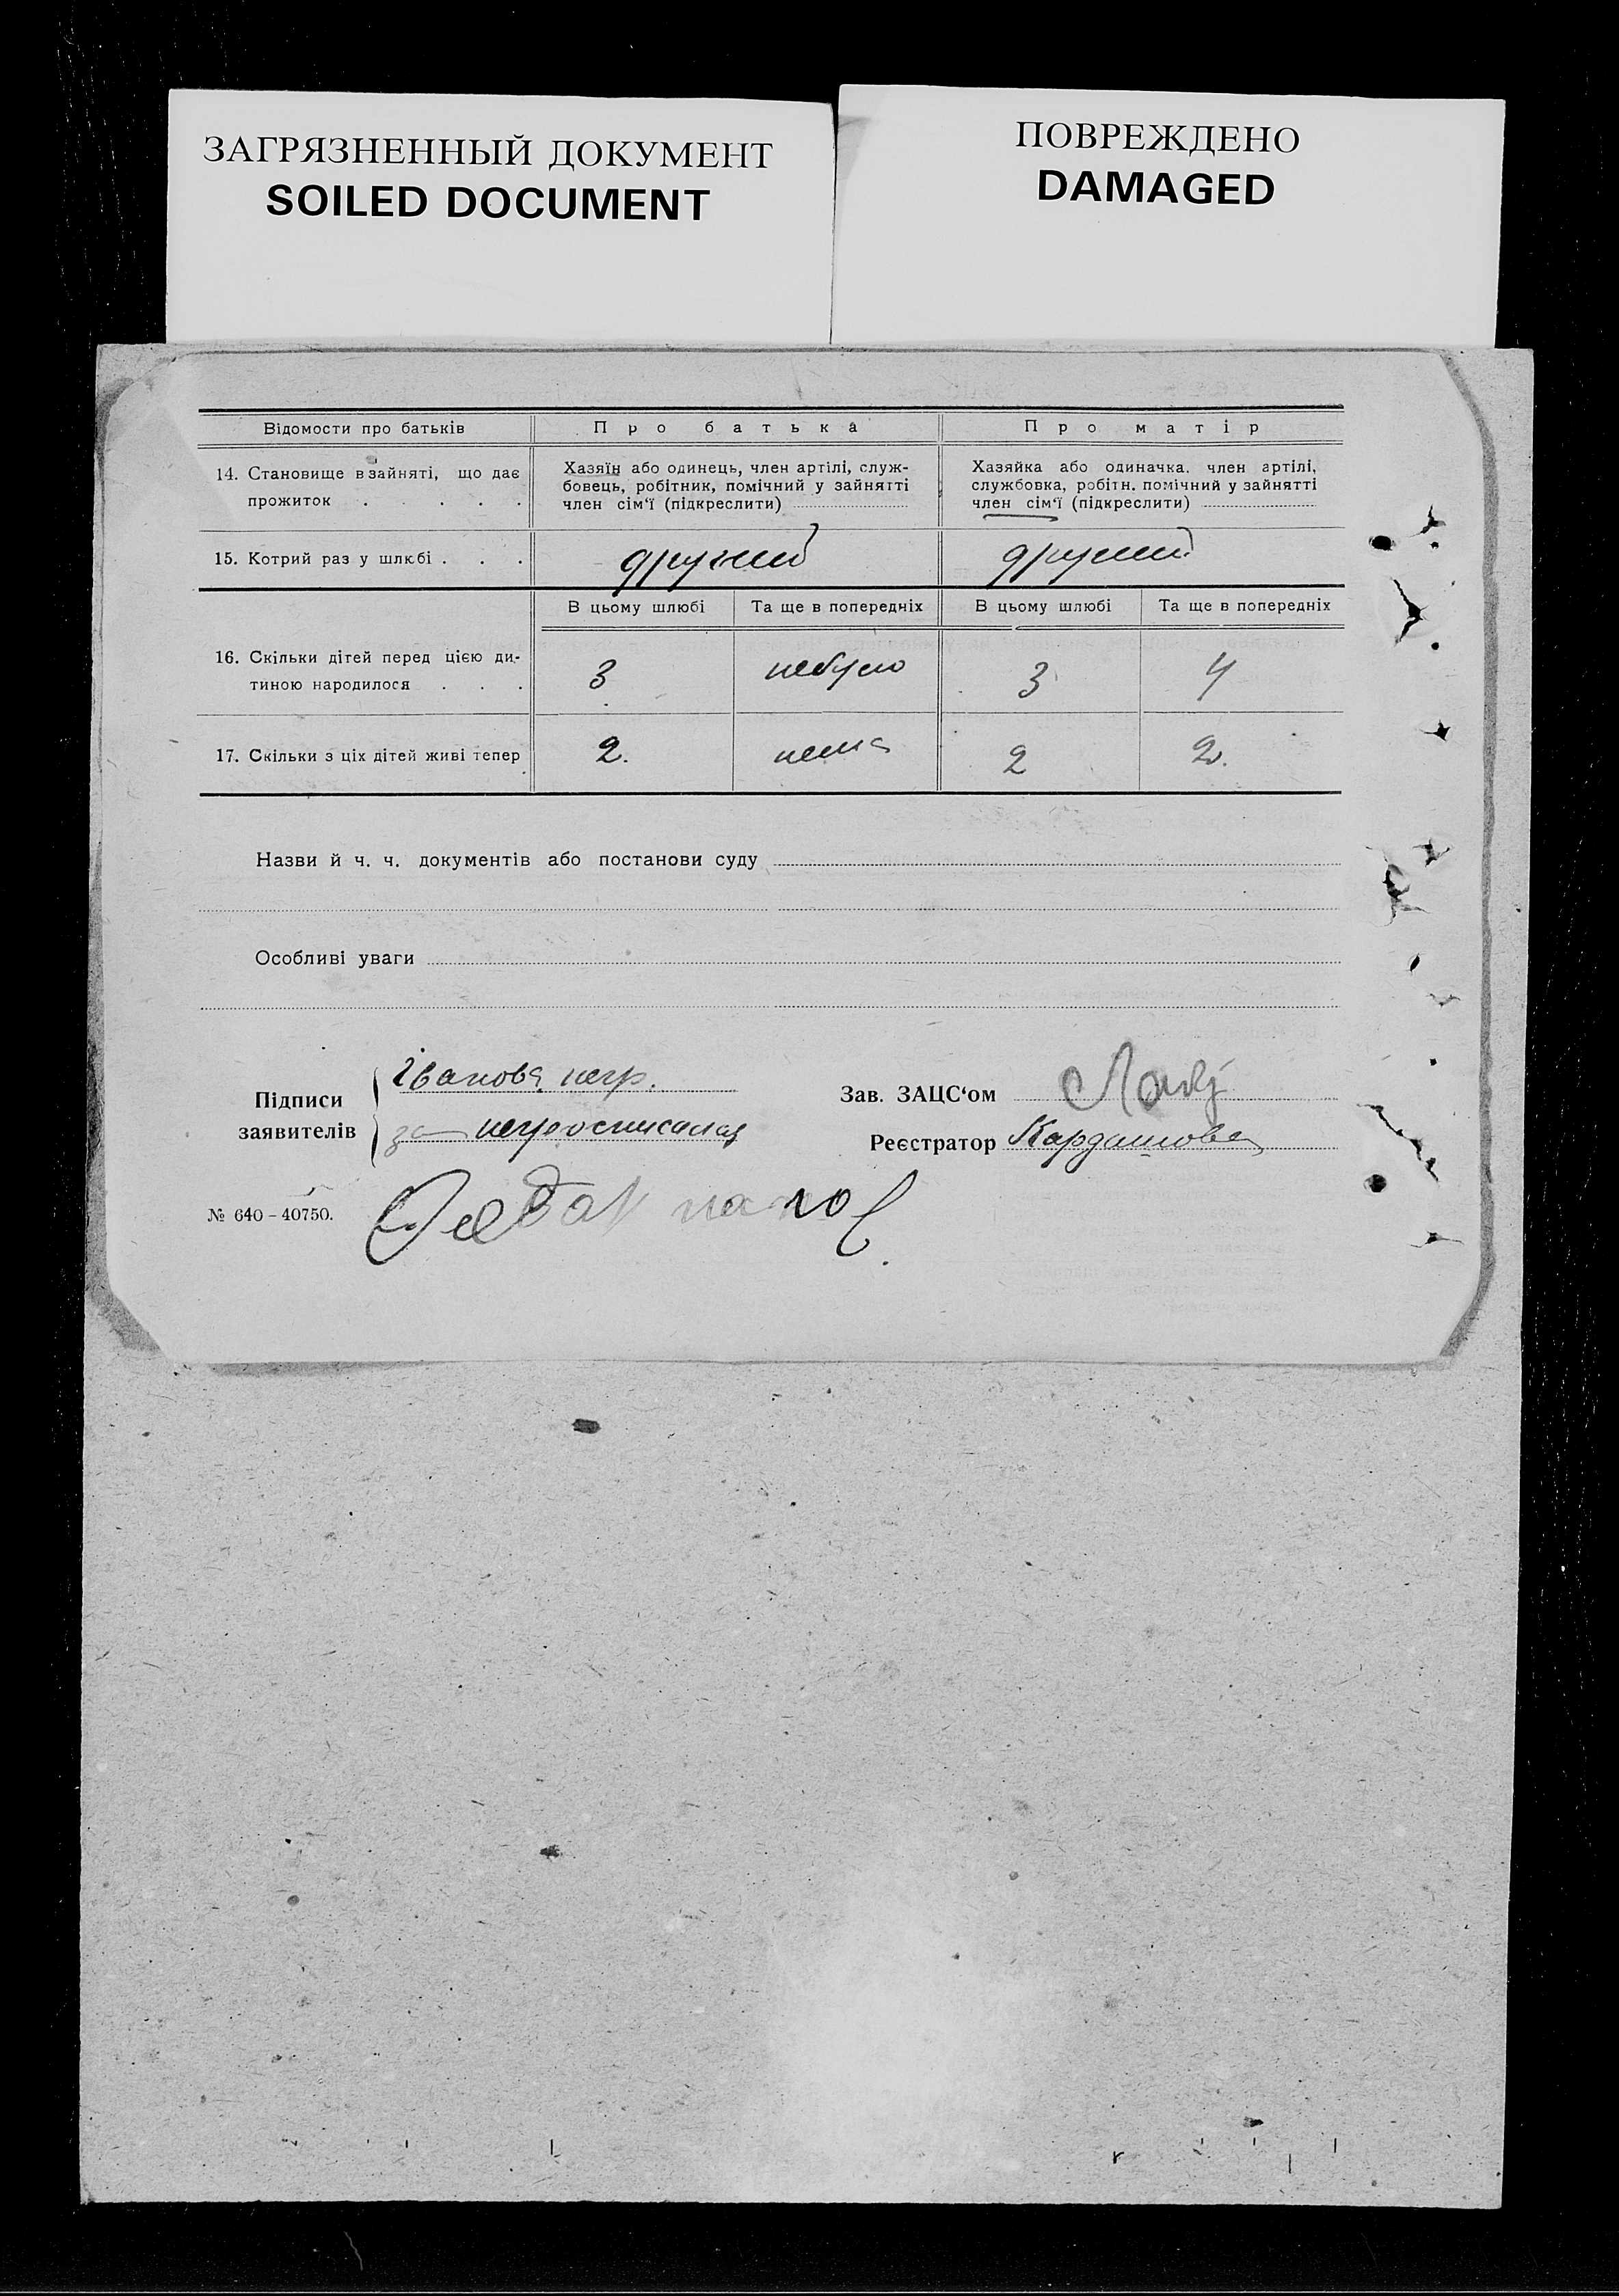 ЗАГРЯЗНЕННЫЙ ДОКУМЕНТ
SOILED DOCUMENT
ПОВРЕЖДЕНО
DAMAGED
Відомости про батьків
Про батька
Про матір
14. Становище в зайняті, що дає
прожиток . . . .
Хазяїн або одинець, член артілі, служ-
бовець, робітник, помічний у зайнятті
член сім‘ї (підкреслити)
Хазяйка або одиначка. член артілі,
службовка, робітн. помічний у зайнятті
член сім‘ї (підкреслити)
15. Котрий раз у шлюбі . . .
другий
другий
В цьому шлюбі
Та ще в попередніх
В цьому шлюбі
Та ще в попередніх
16. Скільки дітей перед цією ди-
тиною народилося . . .
3
небуло
3
4
17. Скільки з ціх дітей живі тепер
2.
нема
2
2.
Назви й ч. ч. документів або постанови суду
Особливі уваги
Підписи
заявителів
Іванова негр.
за
Зав. ЗАЦС‘ом
Реєстратор Кардашова
№ 640 – 40750.